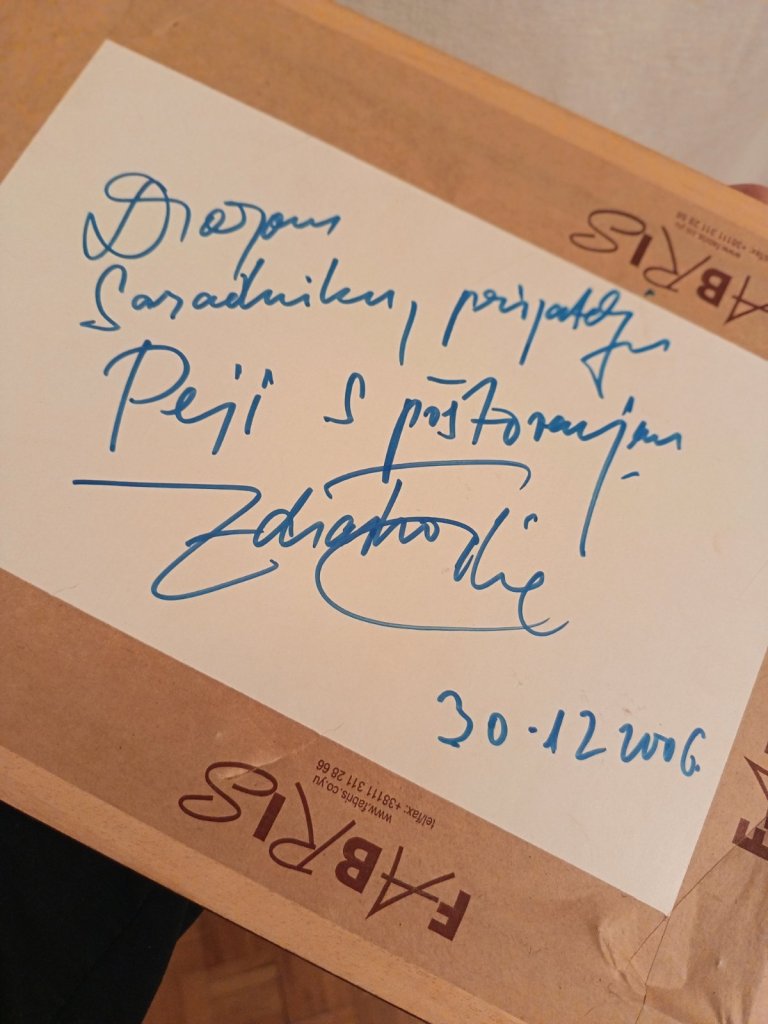 Dragom
saradniku, prijatelju
Peji s poštovanjem
30.12 2006.
FABRIS
www.fabris.co.yu
tel/fax: +38111 311 28 66
FABRIS
www.fabris.co.yu
tel/fax: +38111 311 28 66